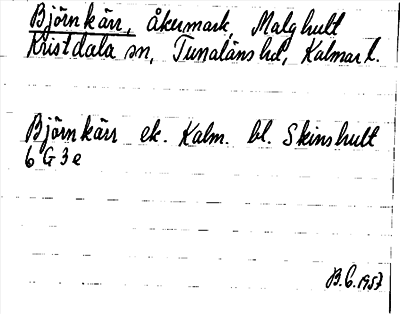 Björnkärr, åkermark, Malghult
Kristdala sn, Tunaläns hd, Kalmar l.
Björnkärr ek. Kalm. bl. Skinshult
6 G 3 e
B.C. 1957